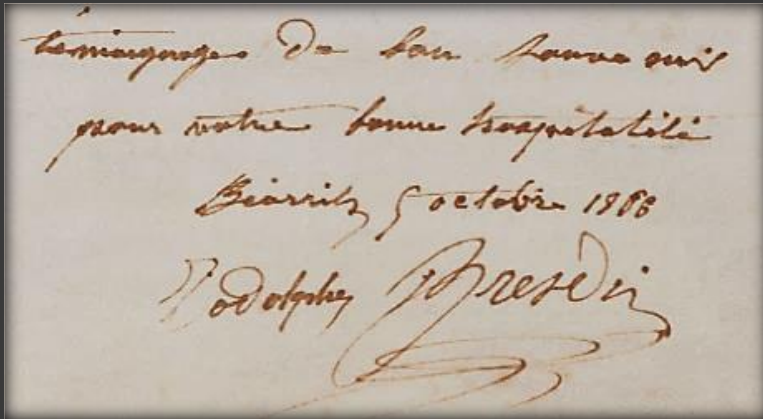 témoignage de bon souvenir
pour votre bonne hospitalité
Biarritz 5 octobre 1866
Rodolphe Bresdin